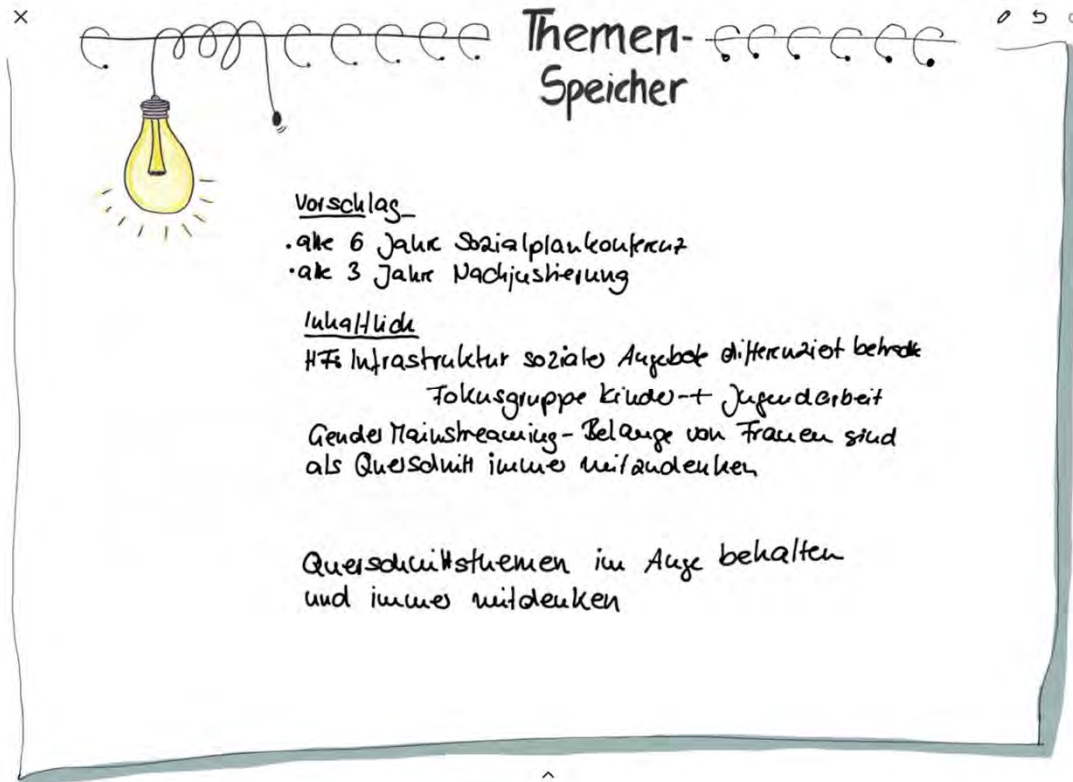 Themen-
Speicher
Vorschlag
• alle 6 Jahre Sozialplankonferenz
• alle 3 Jahre Nachjustierung
Inhaltlich
HF: Infrastruktur soziale Angebote differenziert
Fokusgruppe Kinder- + Jugendarbeit
Gender Mainstreaming - Belange von Frauen sind
als Querschnitt immer mitzudenken
Querschnittsthemen im Auge behalten
und immer mitdenken